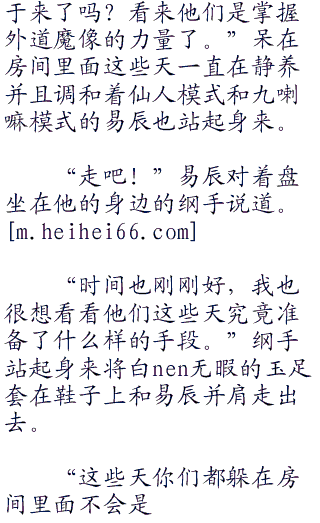 于来了吗？看来他们是掌握
外道魔像的力量了。”呆在
房间里面这些天一直在静养
并且调和着仙人模式和九喇
嘛模式的易辰也站起身来。
“走吧！”易辰对着盘
坐在他的身边的纲手说道。
[m.heihei66.com]
“时间也刚刚好，我也
很想看看他们这些天究竟准
备了什么样的手段。”纲手
站起身来将白nen无暇的玉足
套在鞋子上和易辰并肩走出
去。
“这些天你们都躲在房
间里面不会是